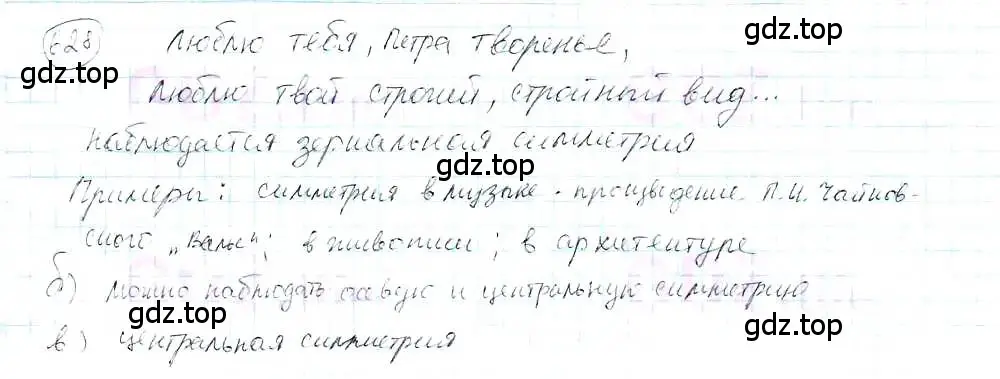 628 Люблю тебя, Петра творенье,
gdz.top gdz.top
Люблю твой строгий, стройный вид...
gdz.top
наблюдается зеркальная симметрия
gdz.top
Примеры: симметрия в музыке - произведение П.И. Чайков-
ского „Вальс"; в живописи; в архитектуре
gdz.top
б) можно наблюдать осевую и центральную симметрию
gdz.top gdz.top
в) центральная симметрия
gdz.top